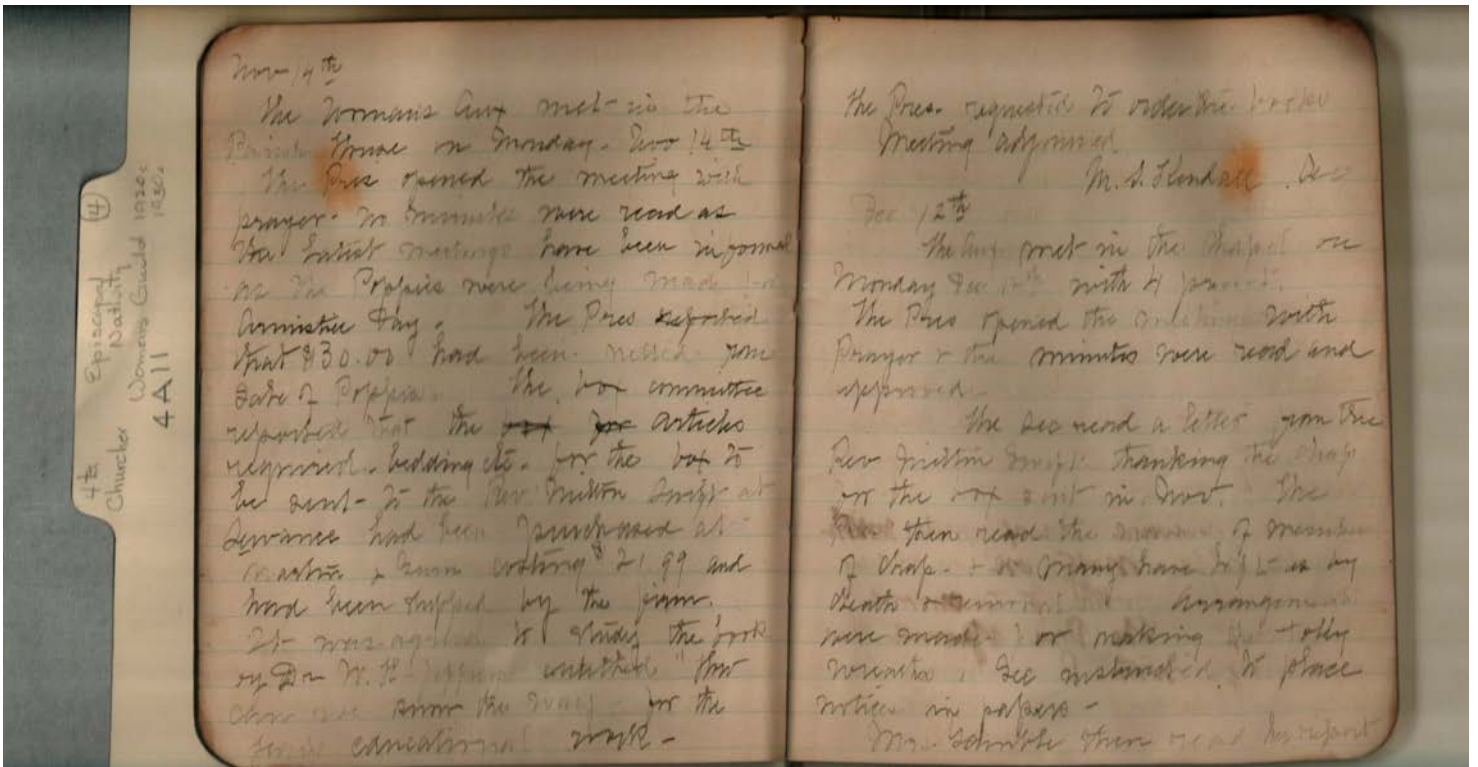 4th
Churches
Episcopal
Nativity
Womens Guild 1920s
1930s
4A11
4
Nov 14th
The Womans Aux met in the
Parish House on Monday - Nov 14th
The Pres opened the meeting with
prayer - no minutes were read as
the latest meetings have been informal
as the Poppies were being made for
Armistice Day. The Pres reported
that $30.00 had been netted from
Sale of Poppies. The box committee
reported that the articles
required - bedding etc - for the box to
be sent - to the Rev. Milton Swift at
Sewanee had been purchased at
costing $21.99 and
had been shipped by the firm.
It was agreed to study the book
by Dr W. H. entitled
the Way - for the
educational work -
the Pres. requested to order the books
Meeting adjourned
M. S. Kendall. Sec
Dec 12th
The Aux met in the Chapel on
Monday Dec 12th with 4 present.
The Pres opened the meeting with
Prayer & the minutes were read and
approved.
The Sec read a letter from the
Rev Milton Swift thanking the Chap
for the box sent in Nov. The
then read the of members
of Chap. - many have left us by
death & removal Arrangements
were made for making the Holly
wreaths, Sec instructed to place
notice in papers -
Mrs. Gamble then read her report